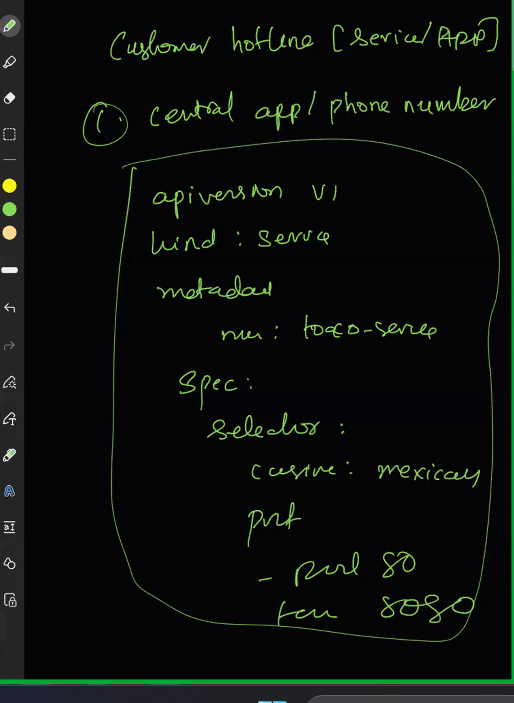 Customer hotline [Service/App]
1. central app/ phone number
apiversion v1
kind : Service
metadata
: taco-service
Spec:
selector :
cusine: mexican
port
- port 80
8080